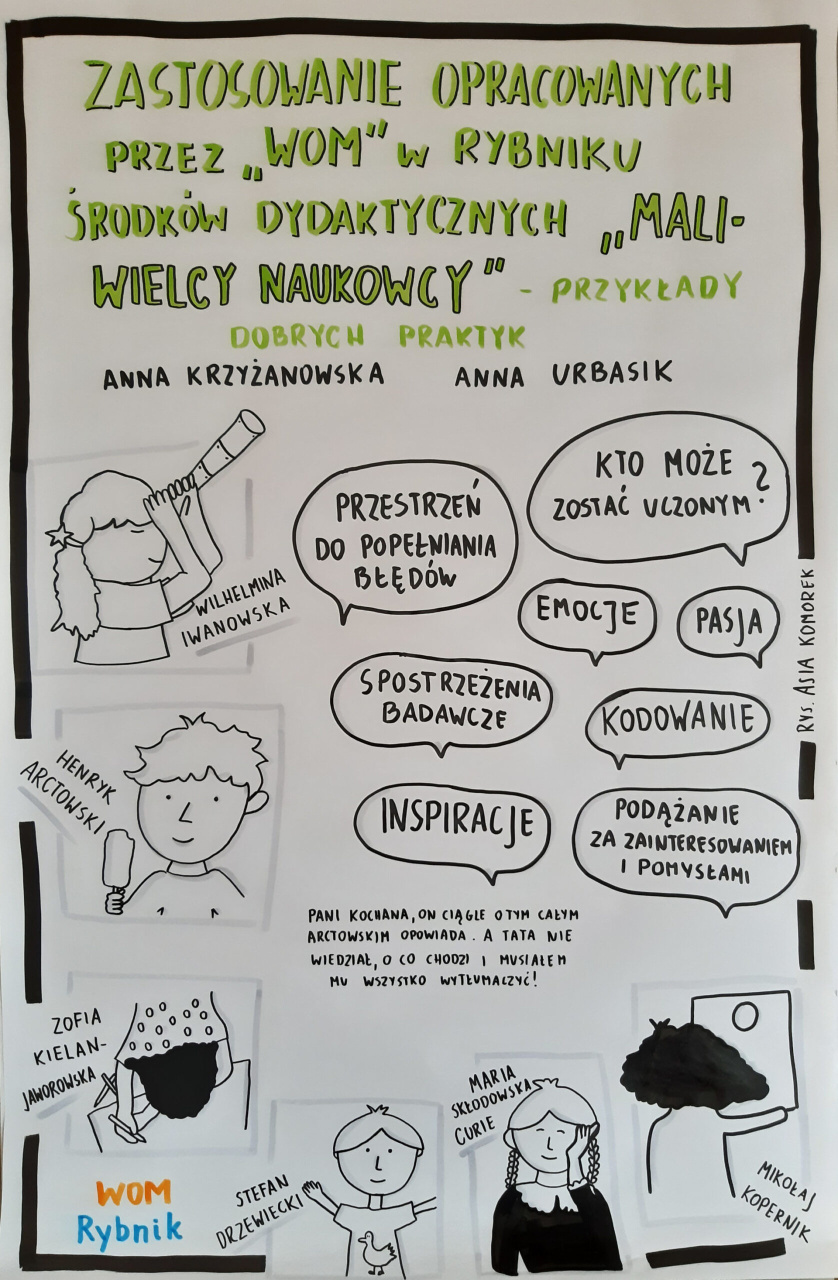 ZASTOSOWANIE OPRACOWANYCH
PRZEZ „WOM" W RYBNIKU
ŚRODKÓW DYDAKTYCZNYCH „MALI-
WIELCY NAUKOWCY" - PRZYKŁADY
DOBRYCH PRAKTYK
ANNA KRZYŻANOWSKA ANNA URBASIK
WILHELMINA
IWANOWSKA
PRZESTRZEŃ
DO POPEŁNIANIA
BŁĘDÓW
KTO MOŻE
ZOSTAĆ UCZONYM?
EMOCJE
PASJA
SPOSTRZEŻENIA
BADAWCZE
KODOWANIE
RYS. ASIA KOMOREK
HENRYK
ARCTOWSKI
INSPIRACJE
PODĄŻANIE
ZA ZAINTERESOWANIEM
I POMYSŁAMI
PANI KOCHANA, ON CIĄGLE O TYM CAŁYM
ARCTOWSKIM OPOWIADA. A TATA NIE
WIEDZIAŁ, O CO CHODZI I MUSIAŁEM
MU WSZYSTKO WYTŁUMACZYĆ!
ZOFIA
KIELAN-
JAWOROWSKA
STEFAN
DRZEWIECKI
MARIA
SKŁODOWSKA
CURIE
MIKOŁAJ
KOPERNIK
WOM
Rybnik